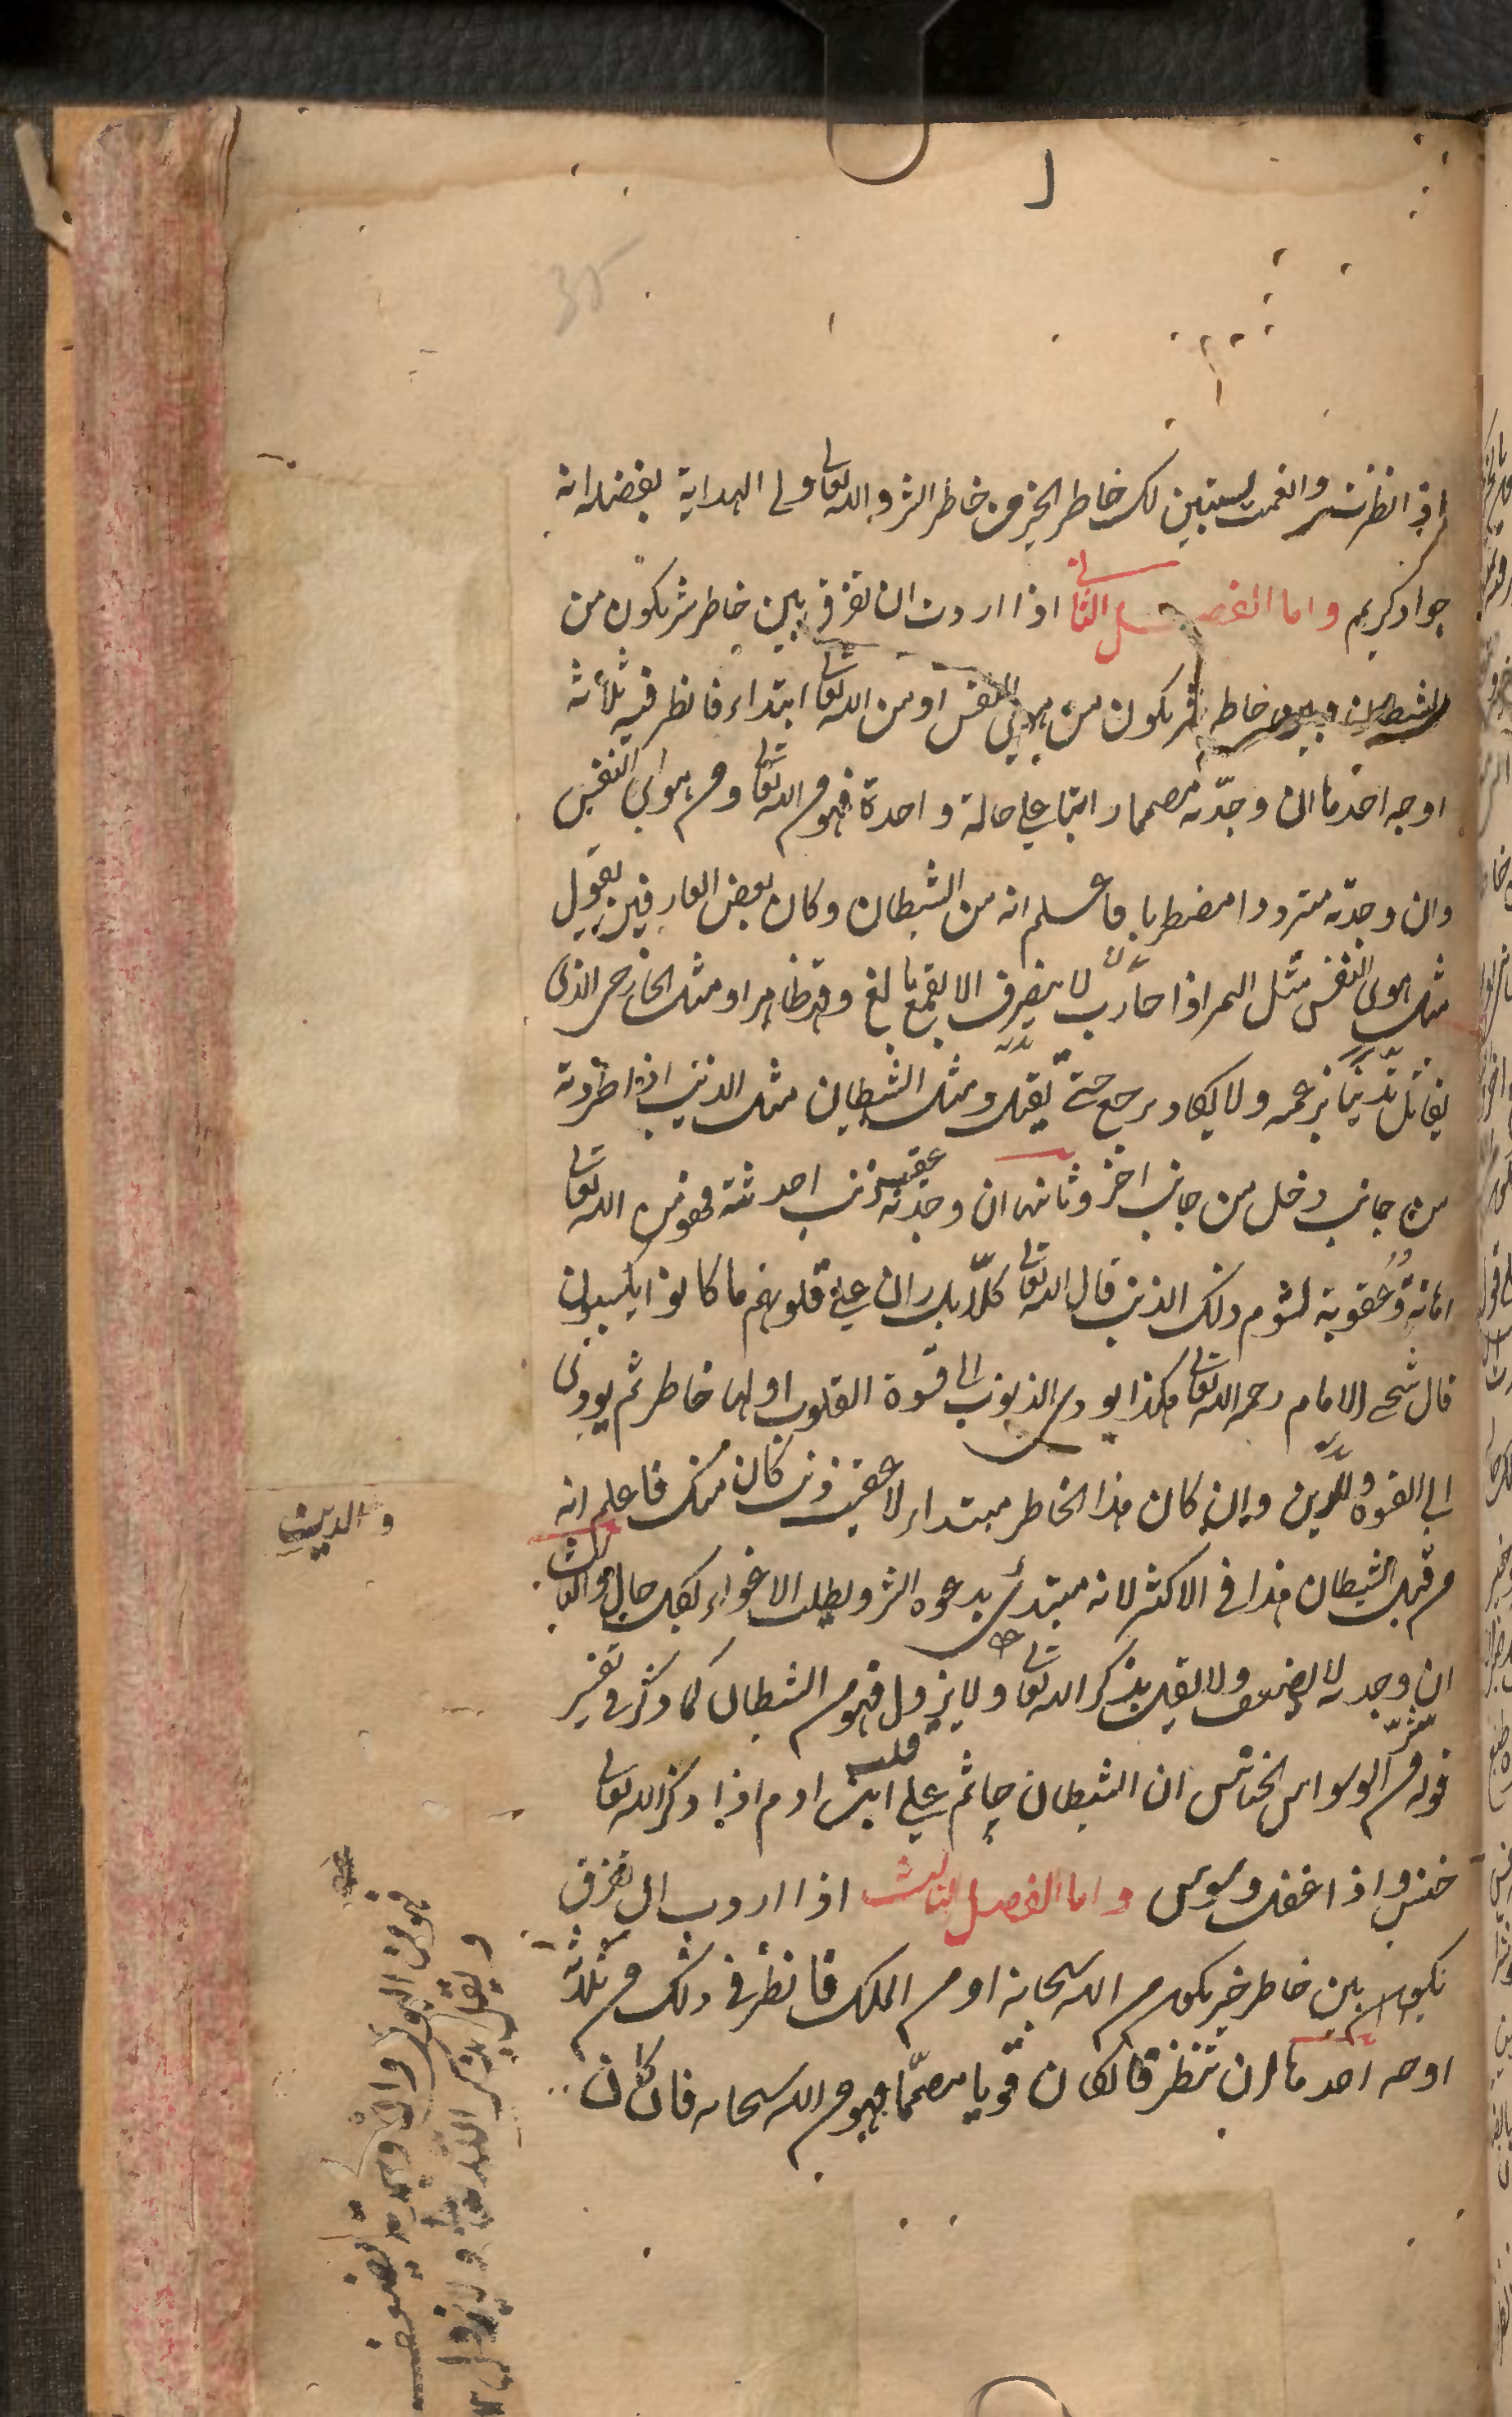 اذا نظرت وانعمت استبين لك خاطر الخير من خاطر الشر والله تعالى ولي الهداية بفضله انه
جواد كريم واما الفصل الثاني اذا اردت ان تفرق بين خاطر شر يكون من
الشيطان وبين خاطر شر يكون من هوى النفس او من الله تعالى ابتداء فانظر فيه ثلاثة
اوجه احدها ان وجدته مصمما راتبا على حالة واحدة فهو من الله تعالى او من هوى النفس
وان وجدته مترددا مضطربا فاعلم انه من الشيطان وكان بعض العارفين يقول
مثل هوى النفس مثل النمر اذا حارب لا ينصرف الا بقمع بالغ وقهر ظاهر او مثل الخارجي الذى
يقاتل تدينا بزعمه ولا يكاد يرجع حتى يقتل ومثل الشيطان مثل الذئب اذا طردته
من جانب دخل من جانب اخر وثانيها ان وجدته عقيب ذنب احدثته فهو من الله تعالى
اهانة وعقوبة لشوم ذلك الذنب قال الله تعالى كلا بل ران على قلوبهم ما كانوا يكسبون
قال شيخى الامام رحمه الله تعالى هكذا يودى الذنوب الى قسوة القلوب اولها خاطر ثم يودى
الى القسوة والرين وان كان هذا الخاطر مبتداء لا عقيب ذنب كان منك فاعلم انه
من قبل الشيطان هذا فى الاكثر لانه مبتدئ بدعوة الشر ويطلب الاغواء بكل حال والثالث
ان وجدته لا يضعف ولا يقل بذكر الله تعالى ولا يزول فهو من الشيطان كما ذكر فى تفسير
قوله من شر الوسواس الخناس ان الشيطان جاثم على قلب ابن ادم اذا ذكر الله تعالى
خنس واذا غفل وسوس واما الفصل الثالث اذا اردت ان تفرق
بين خاطر خير يكون من الله سبحانه او من الملك فانظر فى ذلك من ثلاثة
اوجه احدها ان تنظر فان كان قويا مصمما فهو من الله سبحانه فان كان
والدين
فهو من الهوى وان وجدته يضعف
ويقل بذكر الله تعالى ولا يزول